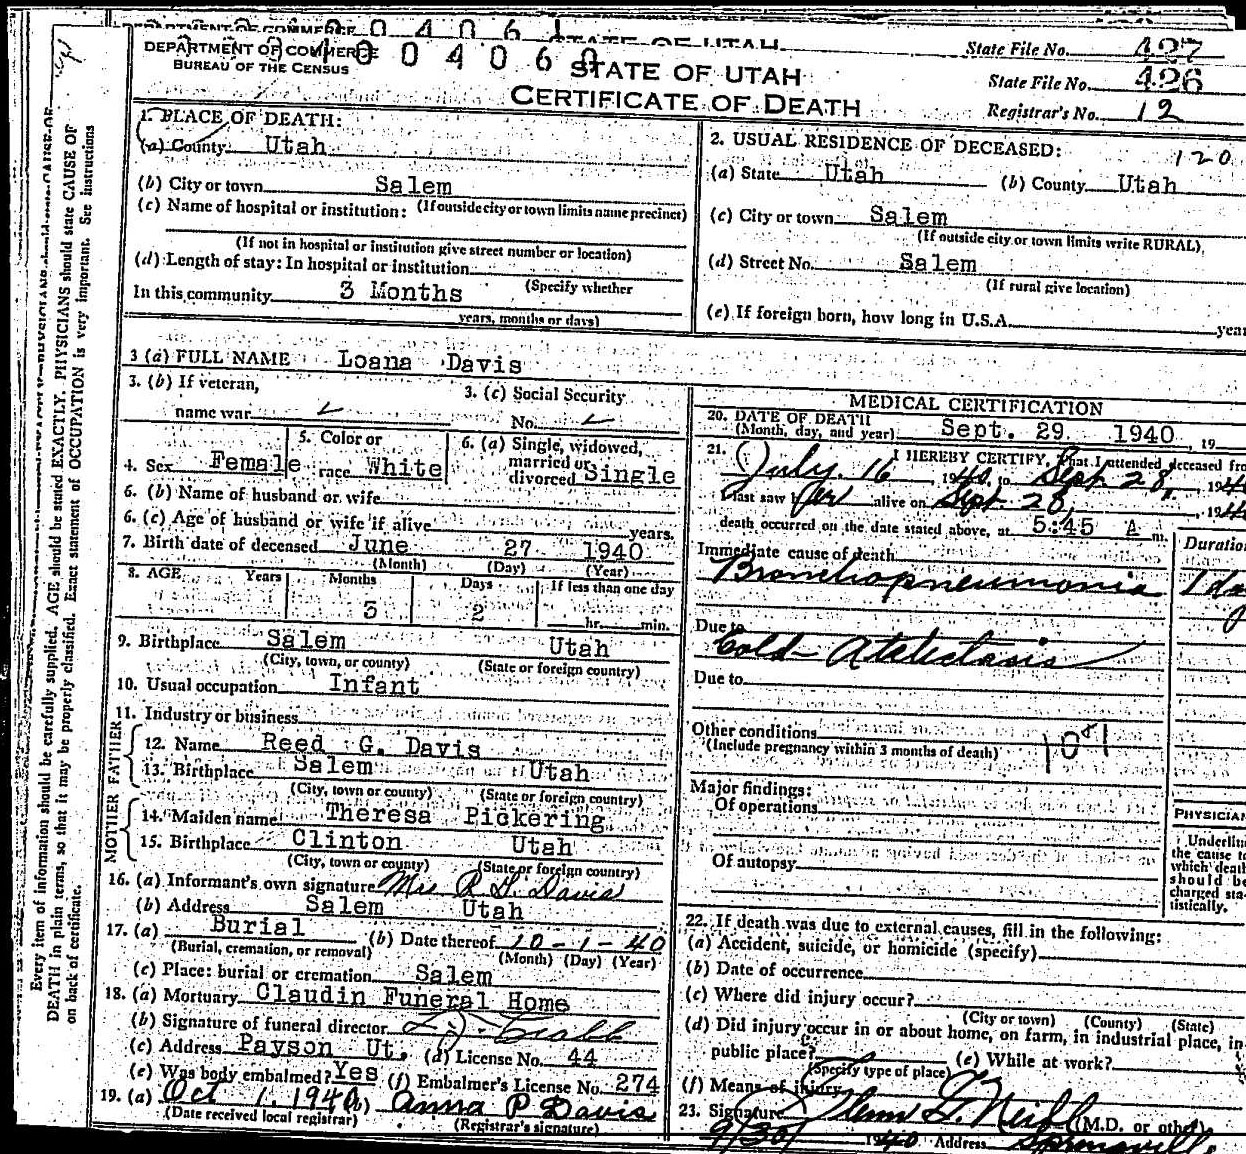 DEPARTMENT OF COMMERCE
STATE OF UTAH
State File No. 427
DEPARTMENT OF COMMERCE
BUREAU OF THE CENSUS
STATE OF UTAH
State File No. 426
CERTIFICATE OF DEATH
Registrar's No. 12
1. PLACE OF DEATH:
(a) County Utah
(b) City or town Salem
(c) Name of hospital or institution: (If outside city or town limits name precinct)
(If not in hospital or institution give street number or location)
(d) Length of stay: In hospital or institution
(Specify whether
In this community 3 Months
years, months or days)
2. USUAL RESIDENCE OF DECEASED: 120
(a) State Utah (b) County Utah
(c) City or town Salem
(If outside city or town limits write RURAL)
(d) Street No. Salem
(If rural give location)
(e) If foreign born, how long in U.S.A.
3 (a) FULL NAME Loana Davis
3. (b) If veteran,
name war
3. (c) Social Security
No.
4. Sex Female
5. Color or
race White
6. (a) Single, widowed,
married or
divorced Single
6. (b) Name of husband or wife
6. (c) Age of husband or wife if alive years.
7. Birth date of deceased June 27 1940
(Month) (Day) (Year)
8. AGE Years Months Days If less than one day
3 2 hr. min.
9. Birthplace Salem Utah
(City, town, or county) (State or foreign country)
10. Usual occupation Infant
11. Industry or business
FATHER
12. Name Reed G. Davis
13. Birthplace Salem Utah
(City, town or county) (State or foreign country)
MOTHER
14. Maiden name Theresa Pickering
15. Birthplace Clinton Utah
(City, town or county) (State or foreign country)
16. (a) Informant's own signature Mrs R G Davis
(b) Address Salem Utah
17. (a) Burial (b) Date thereof 10-1-40
(Burial, cremation, or removal) (Month) (Day) (Year)
(c) Place: burial or cremation Salem
18. (a) Mortuary Claudin Funeral Home
(b) Signature of funeral director
(c) Address Payson Ut. (d) License No. 44
(e) Was body embalmed? Yes (f) Embalmer's License No. 274
19. (a) Oct 1, 1940 (b) Anna P Davis
(Date received local registrar) (Registrar's signature)
MEDICAL CERTIFICATION
20. DATE OF DEATH
(Month, day, and year) Sept. 29, 1940, 19
21. I HEREBY CERTIFY, That I attended deceased
July 16, 1940, to Sept 28,
I last saw her alive on Sept. 28,
death occurred on the date stated above, at 5:45 A m.
Immediate cause of death
Duration
Bronchopneumonia
Due to
Cold - Atelectasis
Due to
Other conditions
(Include pregnancy within 3 months of death)
Major findings:
Of operations
Of autopsy
PHYSICIAN
Underline
the cause to
which death
should be
charged sta-
tistically.
22. If death was due to external causes, fill in the following:
(a) Accident, suicide, or homicide (specify)
(b) Date of occurrence
(c) Where did injury occur?
(City or town) (County) (State)
(d) Did injury occur in or about home, on farm, in industrial place, in
public place? (e) While at work?
(Specify type of place)
(f) Means of injury
23. Signature (M.D. or other)
9/30/ 1940 Address Springville
Every item of information should be carefully supplied. AGE should be stated EXACTLY. PHYSICIANS should state CAUSE OF
DEATH in plain terms, so that it may be properly classified. Exact statement of OCCUPATION is very important. See Instructions
on back of certificate.